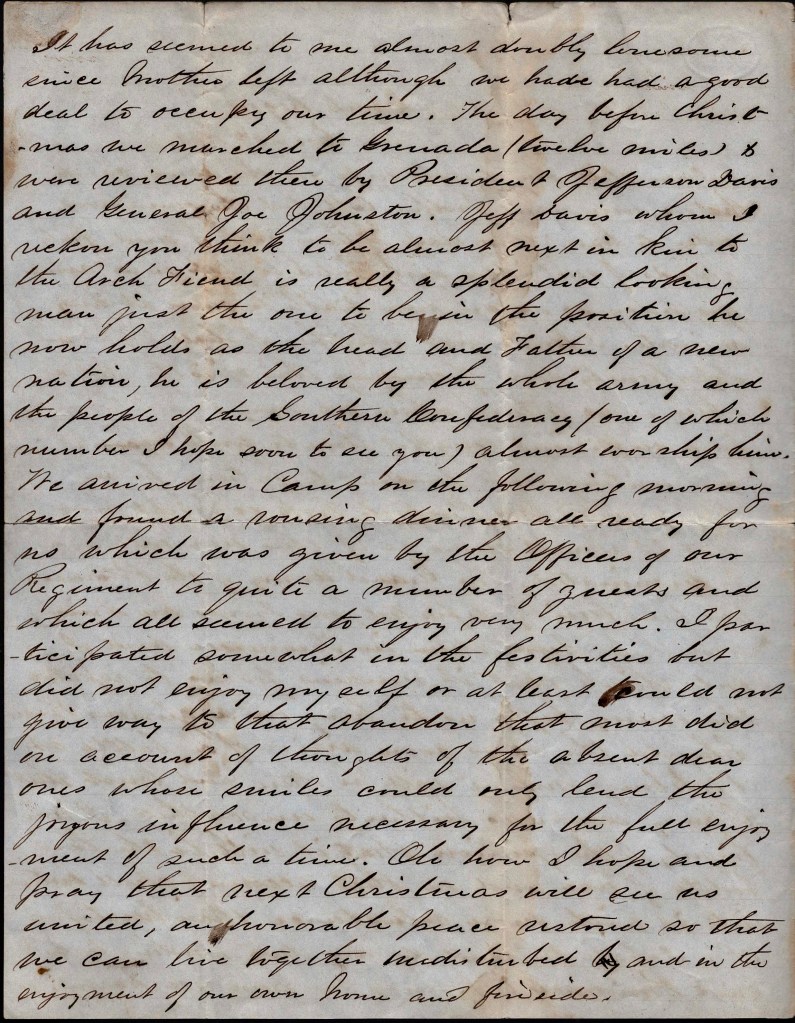 It has seemed to me almost doubly lonesome
since Mother left although we have had a good
deal to occupy our time. The day before Christ-
-mas we marched to Grenada (twelve miles) &
were reviewed there by President Jefferson Davis
and General Joe Johnston. Jeff Davis whom I
reckon you think to be almost next in kin to
the Arch Fiend is really a splendid looking
man just the one to be in the position he
now holds as the head and Father of a new
nation, he is beloved by the whole army and
the people of the Southern Confederacy (one of which
number I hope soon to see you) almost worship him.
We arrived in Camp on the following morning
and found a rousing dinner all ready for
us which was given by the Officers of our
Regiment to quite a number of guests and
which all seemed to enjoy very much. I par
-ticipated somewhat in the festivities but
did not enjoy myself or at least could not
give way to that abandon that most did
on account of thoughts of the absent dear
ones whose smiles could only lend the
joyous influence necessary for the full enjoy
-ment of such a time. Oh how I hope and
pray that next Christmas will see us
united, an honorable peace restored so that
we can live together undisturbed and in the
enjoyment of our own home and fireside.